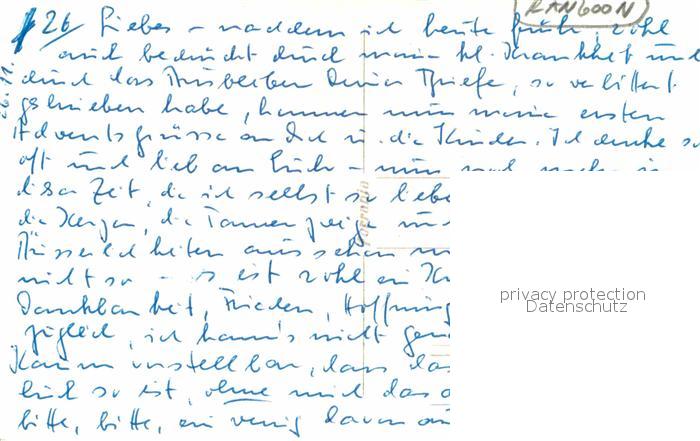 RANGOON
26/ Liebes – nachdem ich heute früh, wohl
auch bedrückt durch meine kl. Krankheit und
durch das Ausbleiben Deiner Briefe, so verbittert
geschrieben habe, kommen nun meine ersten
Adventsgrüsse an Dich u. die Kinder. Ich denke so
oft und lieb an Euch – nun und
diese Zeit, die ich selbst so liebe
die Kerzen, die Tannenzweige
Äusserlichkeiten aussehen
nicht so – es ist wohl ein
Dankbarkeit, Frieden, Hoffnung
zugleich, ich kann's nicht
Kaum vorstellbar, dass das
Euch so ist, ohne mich
bitte, bitte, ein wenig davon
26.11
privacy protection
Datenschutz